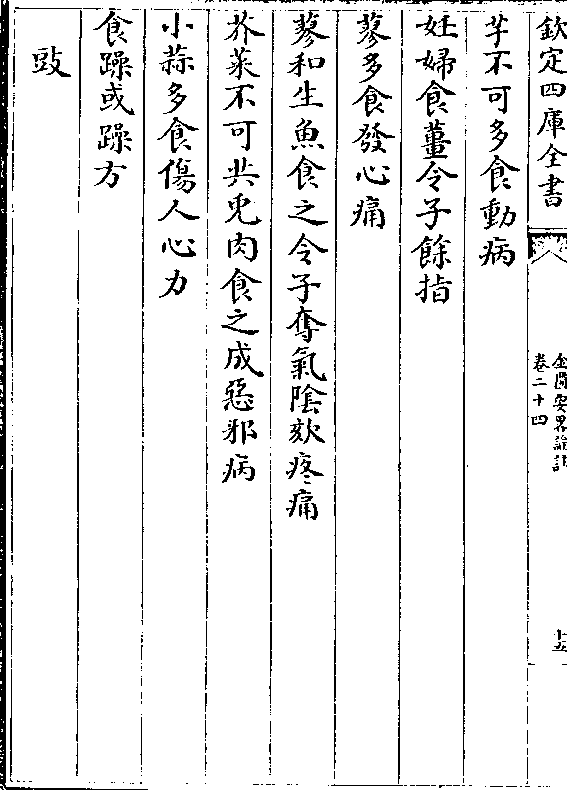 欽定四庫全書
金匱要畧論註
卷二十四
十五
芋不可多食動病
妊婦食薑令子餘指
蓼多食發心痛
蓼和生魚食之令子奪氣陰欬疼痛
芥菜不可共兎肉食之成惡邪病
小蒜多食傷人心力
食躁或躁方
豉